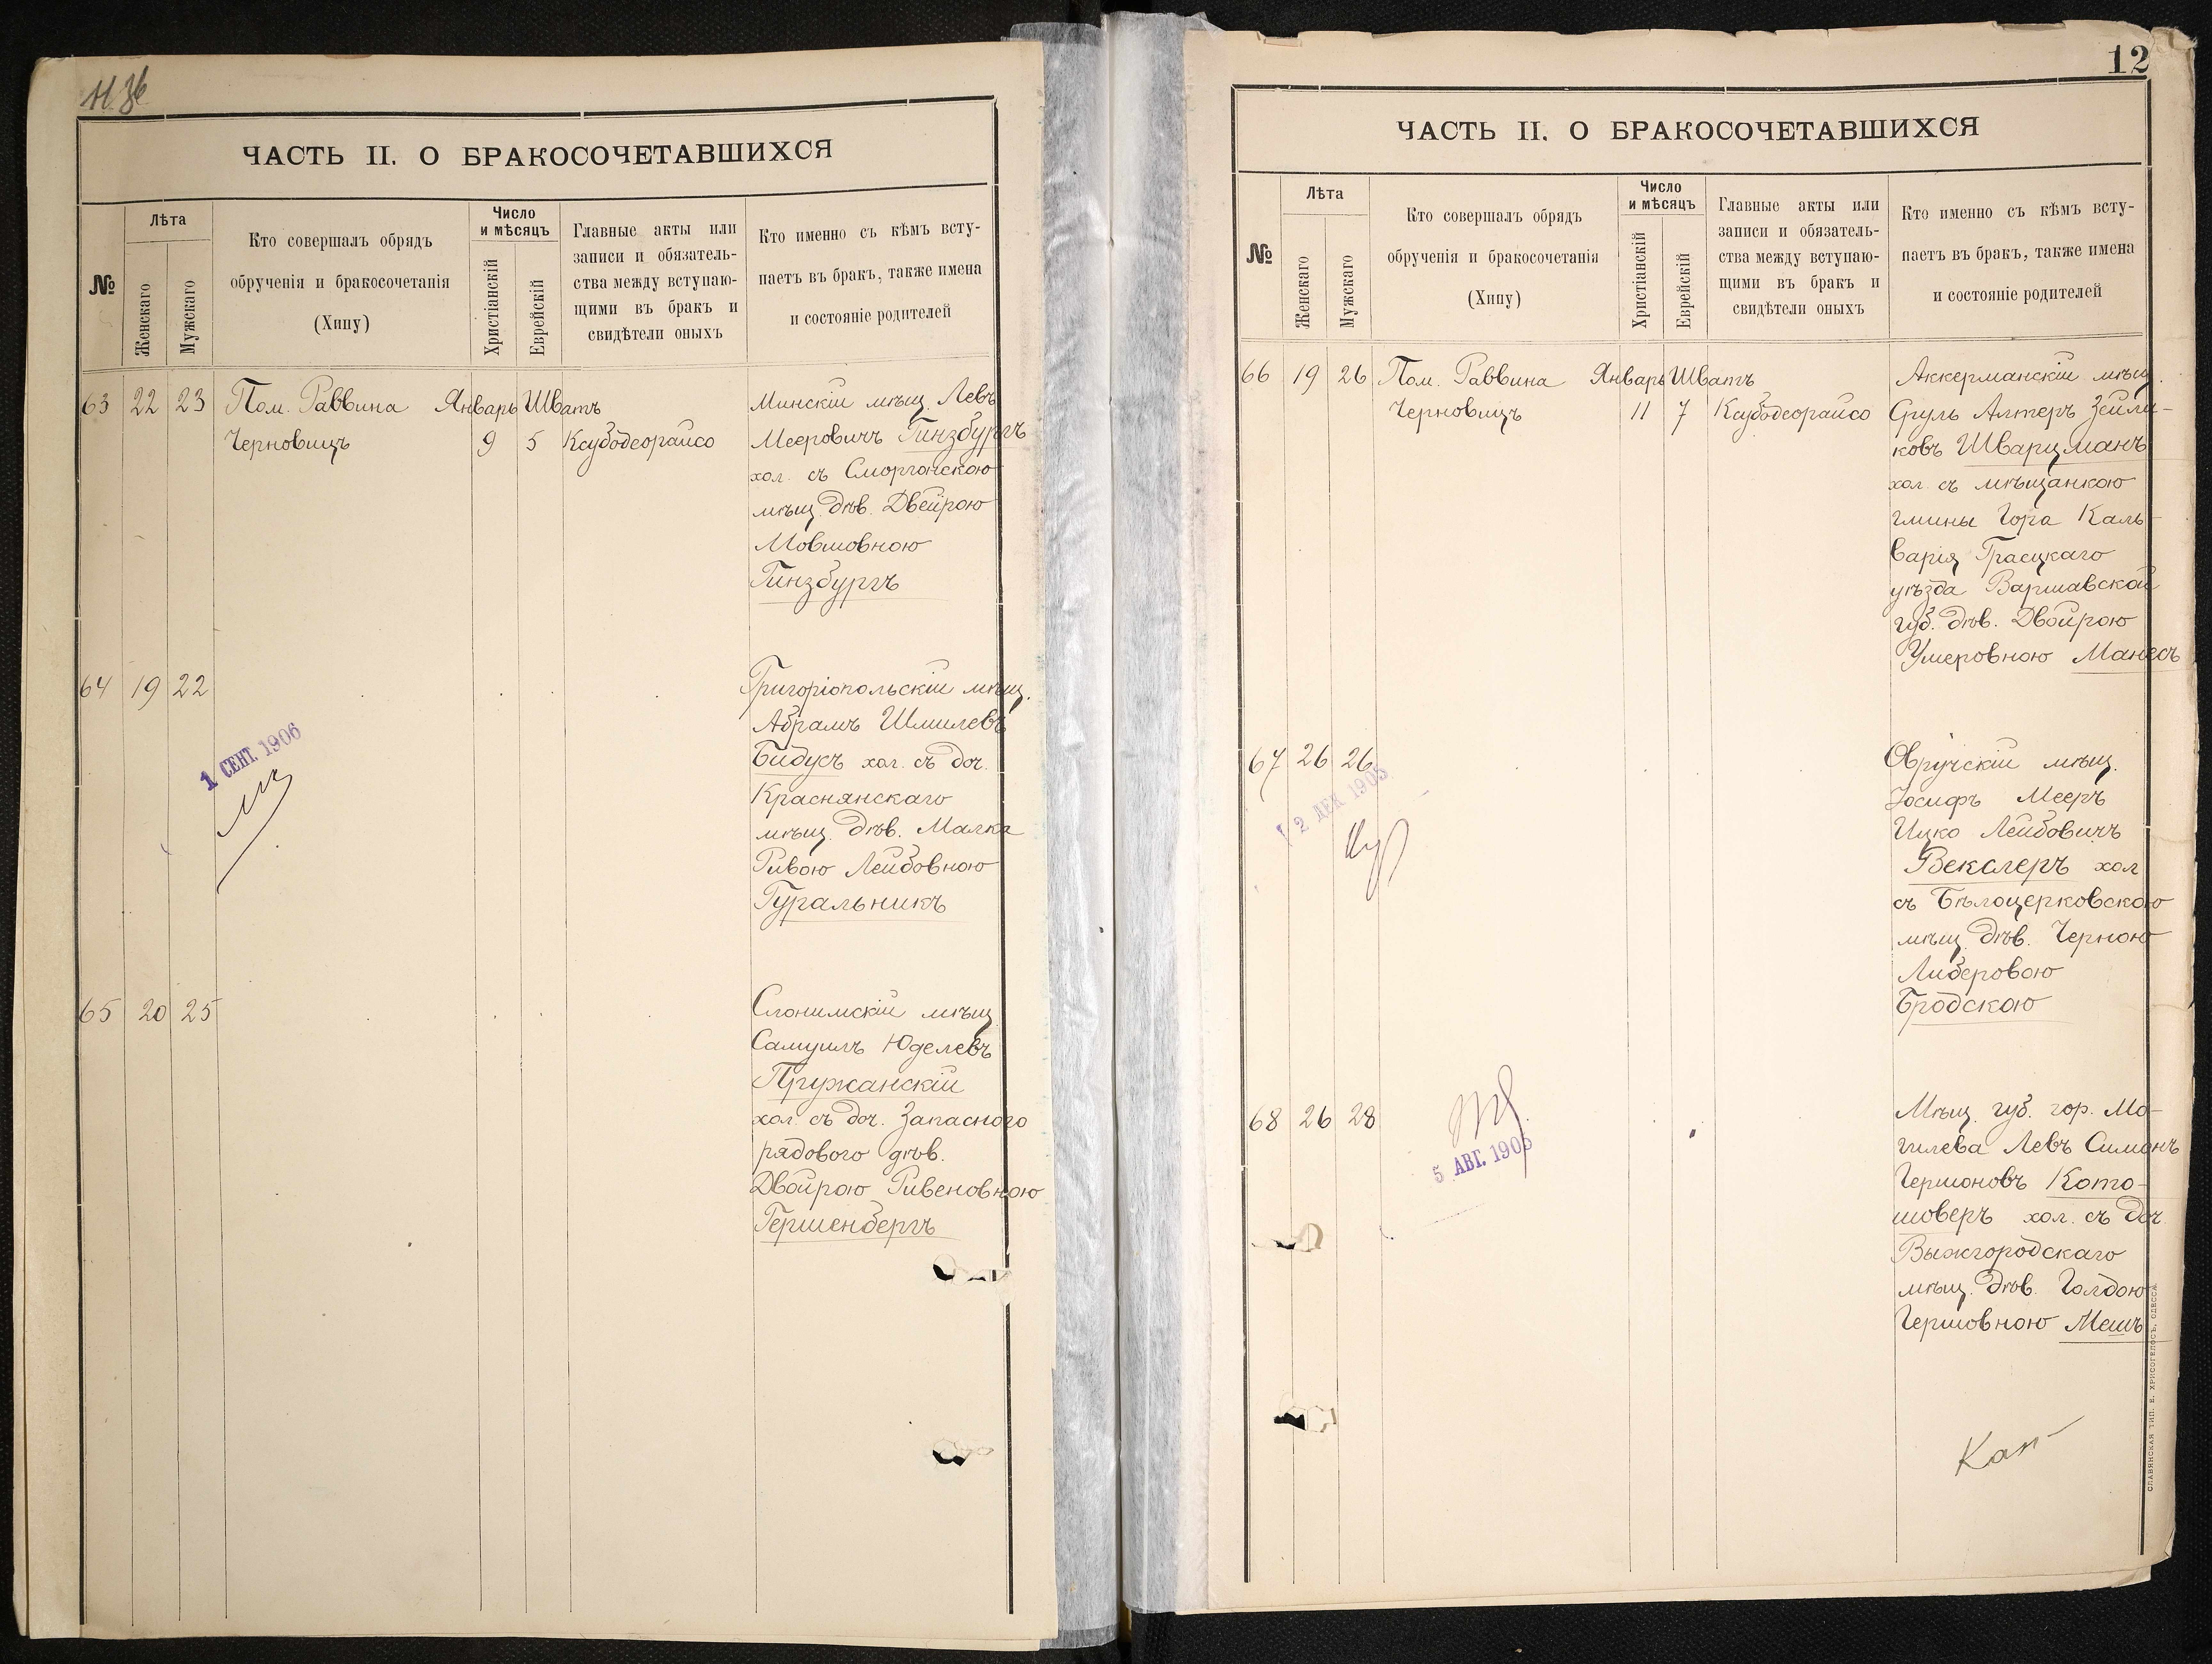 ЧАСТЬ II. О БРАКОСОЧЕТАВШИХСЯ
№
Лѣта
Женскаго
Мужскаго
Кто совершалъ обрядъ
обрученія и бракосочетанія
(Хипу)
Число
и мѣсяцъ
Христіанскій
Еврейскій
Главные акты или
записи и обязатель-
ства между вступаю-
щими въ бракъ и
свидѣтели оныхъ
Кто именно съ кѣмъ всту-
паетъ въ бракъ, также имена
и состояніе родителей
63 22 23 Пом. Раввина Январь Шватъ
Черновицъ 9 5 Ксубодеорайсо
Минскій мѣщ. Левъ
Мееровичъ Гинзбургъ
хол. съ Сморгонскою
мѣщ. дѣв. Двейрою
Мовшовною
Гинзбургъ
64 19 22
Григоріопольскій мѣщ.
Абрамъ Шмилевъ
Бидусъ хол. съ доч.
Краснянскаго
мѣщ. дѣв. Малка
Ривою Лейбовною
Гуральникъ
1 СЕНТ. 1906
65 20 25
Слонимскій мѣщ.
Самуилъ Юделевъ
Пружанскій
хол. съ доч. Запасного
рядового дѣв.
Двойрою Рувеновною
Гершенбергъ
12
ЧАСТЬ II. О БРАКОСОЧЕТАВШИХСЯ
№
Лѣта
Женскаго
Мужскаго
Кто совершалъ обрядъ
обрученія и бракосочетанія
(Хипу)
Число
и мѣсяцъ
Христіанскій
Еврейскій
Главные акты или
записи и обязатель-
ства между вступаю-
щими въ бракъ и
свидѣтели оныхъ
Кто именно съ кѣмъ всту-
паетъ въ бракъ, также имена
и состояніе родителей
66 19 26 Пом. Раввина Январь Шватъ
Черновицъ 11 7 Ксубодеорайсо
Аккерманскій мѣщ.
Сруль Алтеръ Зейли-
ковъ Шварцманъ
хол. съ мѣщанкою
гмины Гора Каль-
варія Граецкаго
уѣзда Варшавской
губ. дѣв. Двойрою
Умеровною Манесъ
67 26 26
Овручскій мѣщ.
Іосифъ Мееръ
Ицко Лейбовичъ
Векслеръ хол
съ Бѣлоцерковскою
мѣщ. дѣв. Черною
Либеровою
Бродскою
2 ДЕК 1905
68 26 28
Мѣщ. губ. гор. Мо-
гилева Левъ Симонъ
Гершоновъ Кото-
шоверъ хол. съ доч.
Вышгородскаго
мѣщ. дѣв. Голдою
Гершовною Мешъ
5 АВГ. 1905
СЛАВЯНСКАЯ ТИП. Е. ХРИСОГЕЛОСЪ, ОДЕССА